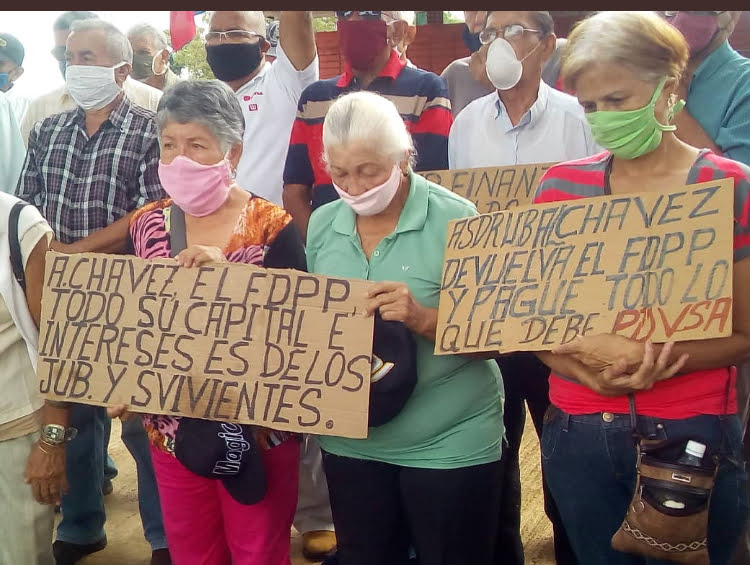 A. CHAVEZ, EL FDPP,
TODO SU CAPITAL E
INTERESES ES DE LOS
JUB. Y SVIVIENTES.
FINANT
ASDRUBAL CHAVEZ
DEVUELVA EL FDPP
Y PAGUE TODO LO
QUE DEBE PDVSA
Magic